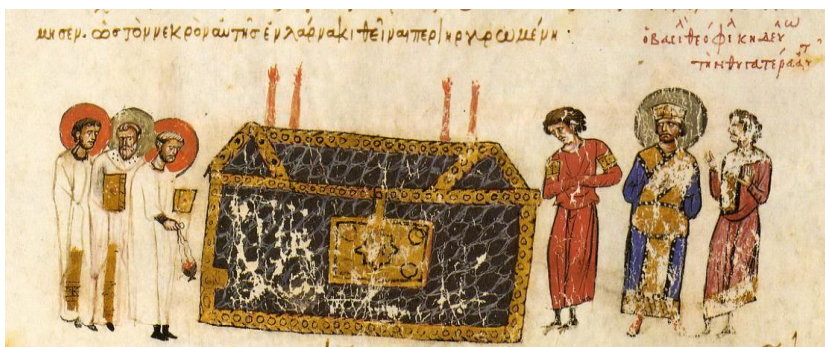 μησεν. ὡς τὸν νεκρὸν αὐτῆς ἐν λάρνακι θεῖναι περιηργυρωμένη·
ὁ βασιλ θεόφιλ κηδεύω
τὴν θυγατέρα αὐτ